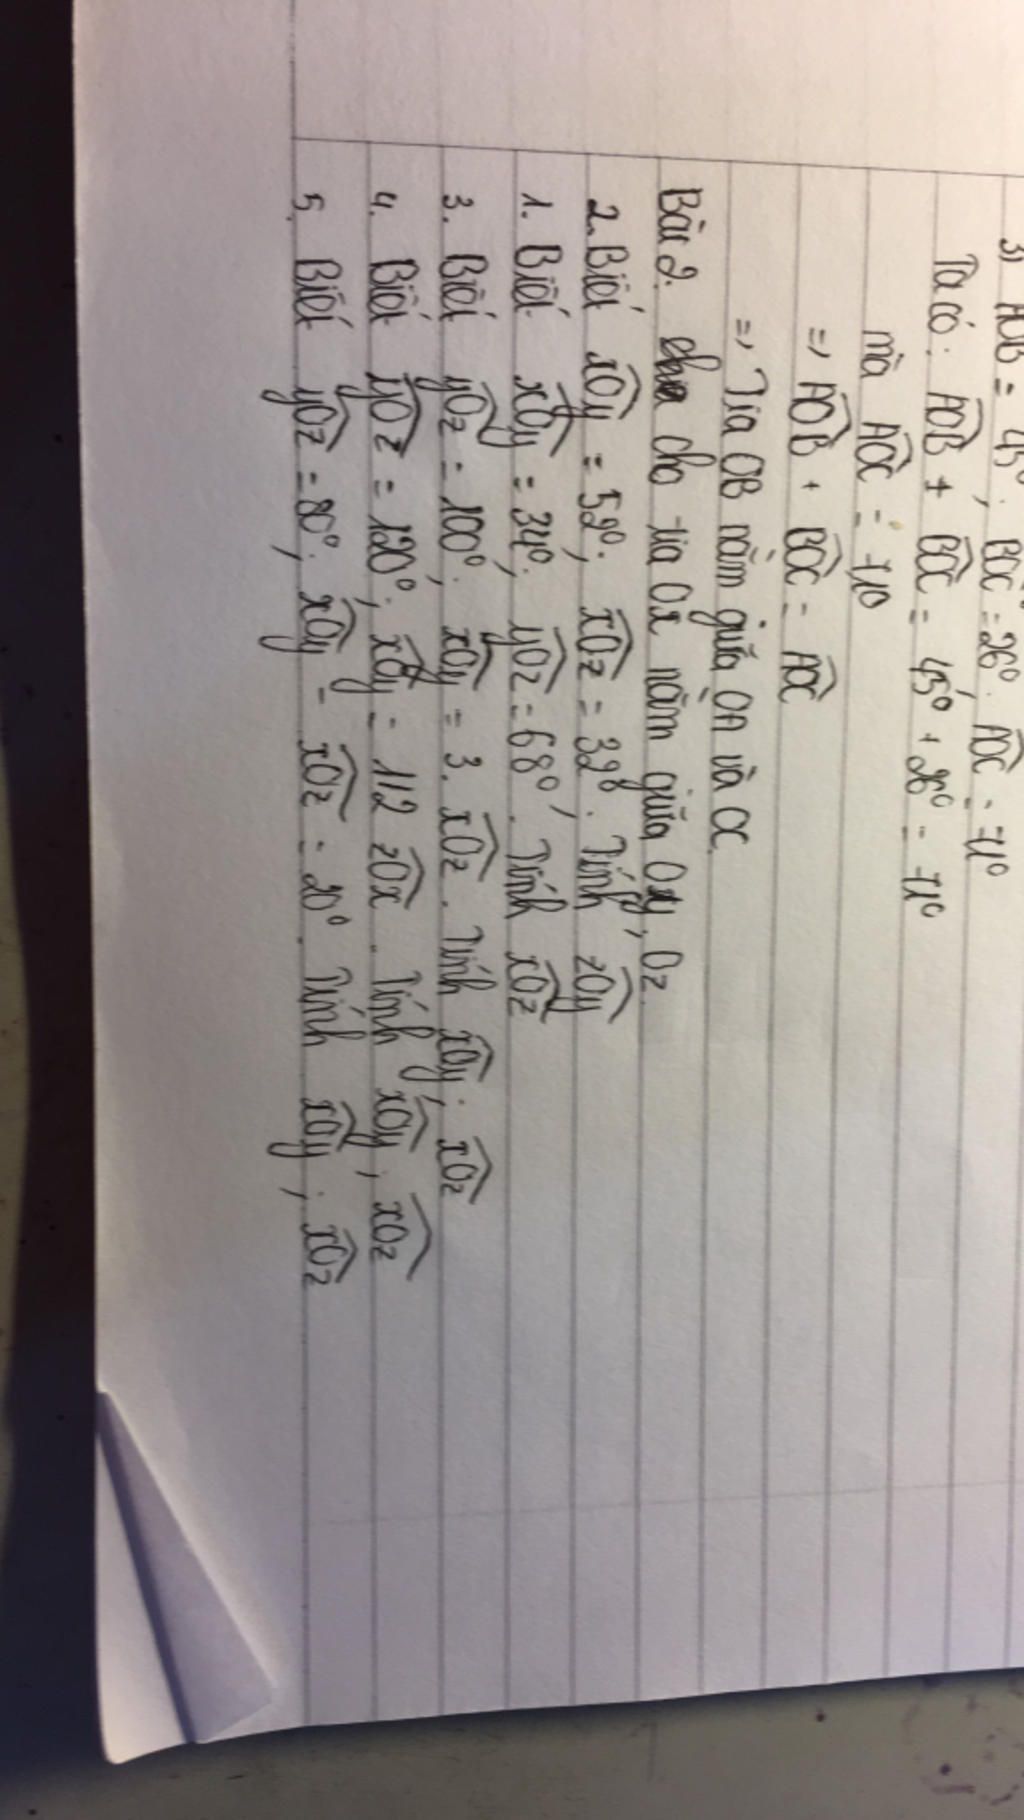 3) AOB = 45°; BOC = 26°; AOC = 71°
Ta có: AOB + BOC = 45° + 26° = 71°
mà AOC = 71°
=> AOB + BOC = AOC
=> Tia OB nằm giữa OA và OC.
Bài 2: cho tia Ox nằm giữa Oy, Oz.
2. Biết xOy = 52°; xOz = 32°. Tính zOy
1. Biết xOy = 34°; yOz = 68°. Tính xOz
3. Biết yOz = 100°; xOy = 3. xOz. Tính xOy; xOz
4. Biết yOz = 120°; xOy = 112 zOx. Tính xOy; xOz
5. Biết yOz = 80°; xOy - xOz = 20°. Tính xOy; xOz